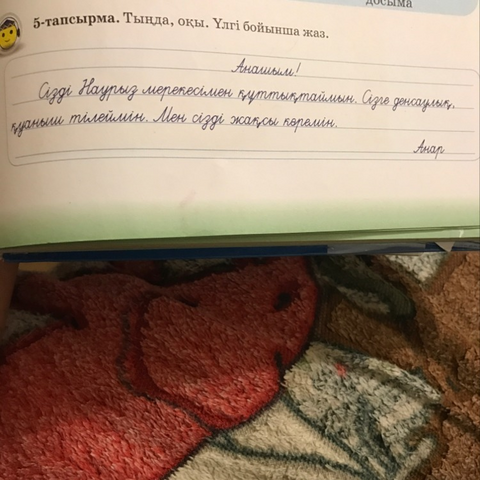 досыма
5-тапсырма. Тыңда, оқы. Үлгі бойынша жаз.
Анашым!
Сізді Наурыз мерекесімен құттықтаймын. Сізге денсаулық,
қуаныш тілеймін. Мен сізді жақсы көремін.
Анар